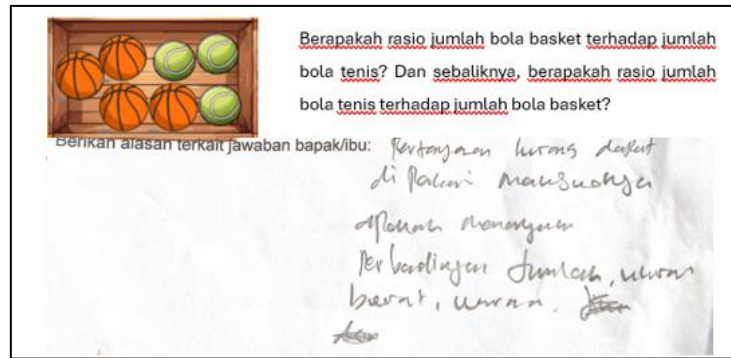 Berapakah rasio jumlah bola basket terhadap jumlah
bola tenis? Dan sebaliknya, berapakah rasio jumlah
bola tenis terhadap jumlah bola basket?
Berikan alasan terkait jawaban bapak/ibu: Pertanyaan kurang dapat
di Pahami maksudnya
apakah menanyakan
Perbandingan Jumlah, ukuran
berat, warna.